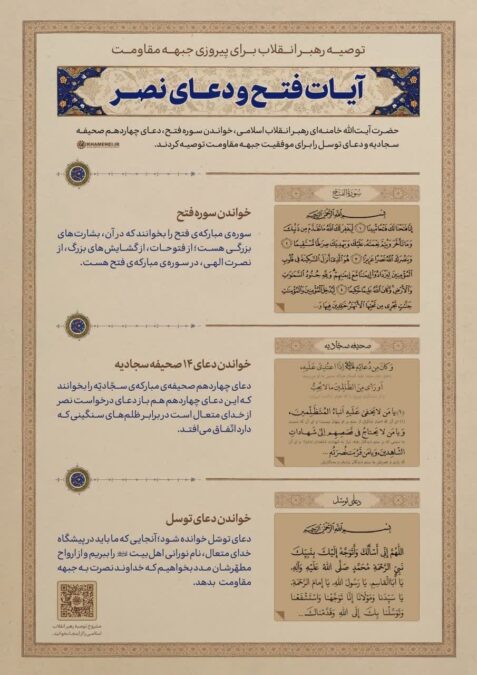 توصیه رهبر انقلاب برای پیروزی جبهه مقاومت
آیات فتح و دعای نصر
حضرت آیت‌الله خامنه‌ای رهبر انقلاب اسلامی، خواندن سوره فتح، دعای چهاردهم صحیفه
سجادیه و دعای توسل را برای موفقیت جبهه مقاومت توصیه کردند.
KHAMENEI.IR
خواندن سوره فتح
سوره‌ی مبارکه‌ی فتح را بخوانند که در آن، بشارت‌های
بزرگی هست؛ از فتوحات، از گشایش‌های بزرگ، از
نصرت الهی، در سوره‌ی مبارکه‌ی فتح هست.
سورة الفتح
بسم الله الرحمن الرحیم
إنا فتحنا لك فتحا مبینا ۱ لیغفر لك الله ما تقدم من ذنبك
وما تأخر ویتم نعمته علیك ویهدیك صراطا مستقیما ۲
وینصرك الله نصرا عزیزا ۳ هو الذی أنزل السکینة فی قلوب
المؤمنین لیزدادوا إیمانا مع إیمانهم ولله جنود السموات
والأرض وکان الله علیما حکیما ۴ لیدخل المؤمنین والمؤمنات
جنت تجری من تحتها الأنهر خلدین فیها و...
خواندن دعای ۱۴ صحیفه سجادیه
دعای چهاردهم صحیفه‌ی مبارکه‌ی سجّادیّه را بخوانند
که این دعای چهاردهم هم باز دعای درخواست نصر
از خدای متعال است در برابر ظلم‌های سنگینی که
دارد اتّفاق می‌افتد.
صحیفه سجادیه
وَ کانَ مِن دُعائِهِ إذَا اعتُدِیَ عَلَیهِ،
أو رَأی مِنَ الظّالِمینَ ما لا یُحِبُّ
(۱) یا مَن لا یَخفی عَلَیهِ أنباءُ المُتَظَلِّمینَ،
وَ یا مَن لا یَحتاجُ فی قَصَصِهِم إلی شَهاداتِ
الشّاهِدینَ وَ یا مَن قَرُبَت نُصرَتُهُ...
خواندن دعای توسل
دعای توسّل خوانده شود؛ آنجایی که ما باید در پیشگاه
خدای متعال، نام نورانی اهل‌بیت را ببریم و از ارواح
مطهّرشان مدد بخواهیم که خداوند نصرت به جبهه
مقاومت بدهد.
دعای توسل
بسم الله الرحمن الرحیم
اللّهُمَّ إنّی أسألُكَ وَ أتَوَجَّهُ إلَیكَ بِنَبِیِّكَ
نَبِیِّ الرَّحمَةِ مُحَمَّدٍ صَلَّی اللهُ عَلَیهِ وَ آلِهِ،
یا أبَا القاسِمِ، یا رَسولَ اللهِ، یا إمامَ الرَّحمَةِ،
یا سَیِّدَنا وَ مَولانا إنّا تَوَجَّهنا وَ استَشفَعنا
وَ تَوَسَّلنا بِكَ إلَی اللهِ وَ قَدَّمناكَ...
مشروح توصیه رهبر انقلاب
اسلامی را از اینجا بخوانید.